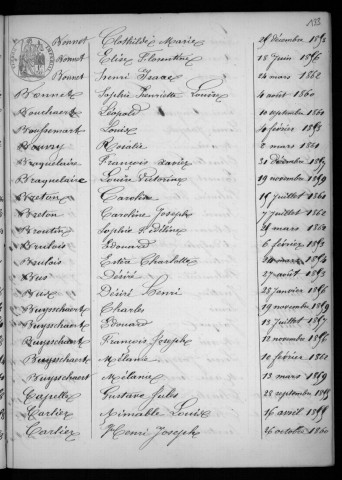 133
Bonnet Clothilde Marie 25 décembre 1853
Bonnet Elise Florentine 18 Juin 1856
Bonnet henri Isaac 24 mars 1860
Bonnet Sophie henriette Louise 4 août 1860
Bouchaert Léopold 10 septembre 1860
Bouffemart Louis 4 février 1853
Bouvry Rosalie 2 mars 1860
Braquelaire François Xavier 31 décembre 1859
Braquelaire Louise Victorine 19 novembre 1859
Breton Caroline 15 Juillet 1860
Breton Caroline Joseph 7 Juillet 1860
Broutin Sophie 28 mars 1860
Brulois Edouard 6 février 1853
Brulois Charlotte
Bus Désiré 27 août 1853
Bus Désiré Henri 28 Janvier 1856
Buysschaert Charles 19 novembre 1859
Buysschaert Edouard 13 Juillet 1857
Buysschaert François Joseph 12 novembre 1856
Buysschaert Mélanie 10 février 1860
Buysschaert Mélanie 13 mars 1859
Capelle Gustave Jules 28 septembre
Cartier Aimable Louis 16 avril
Cartier Henri Joseph 26 octobre 1860